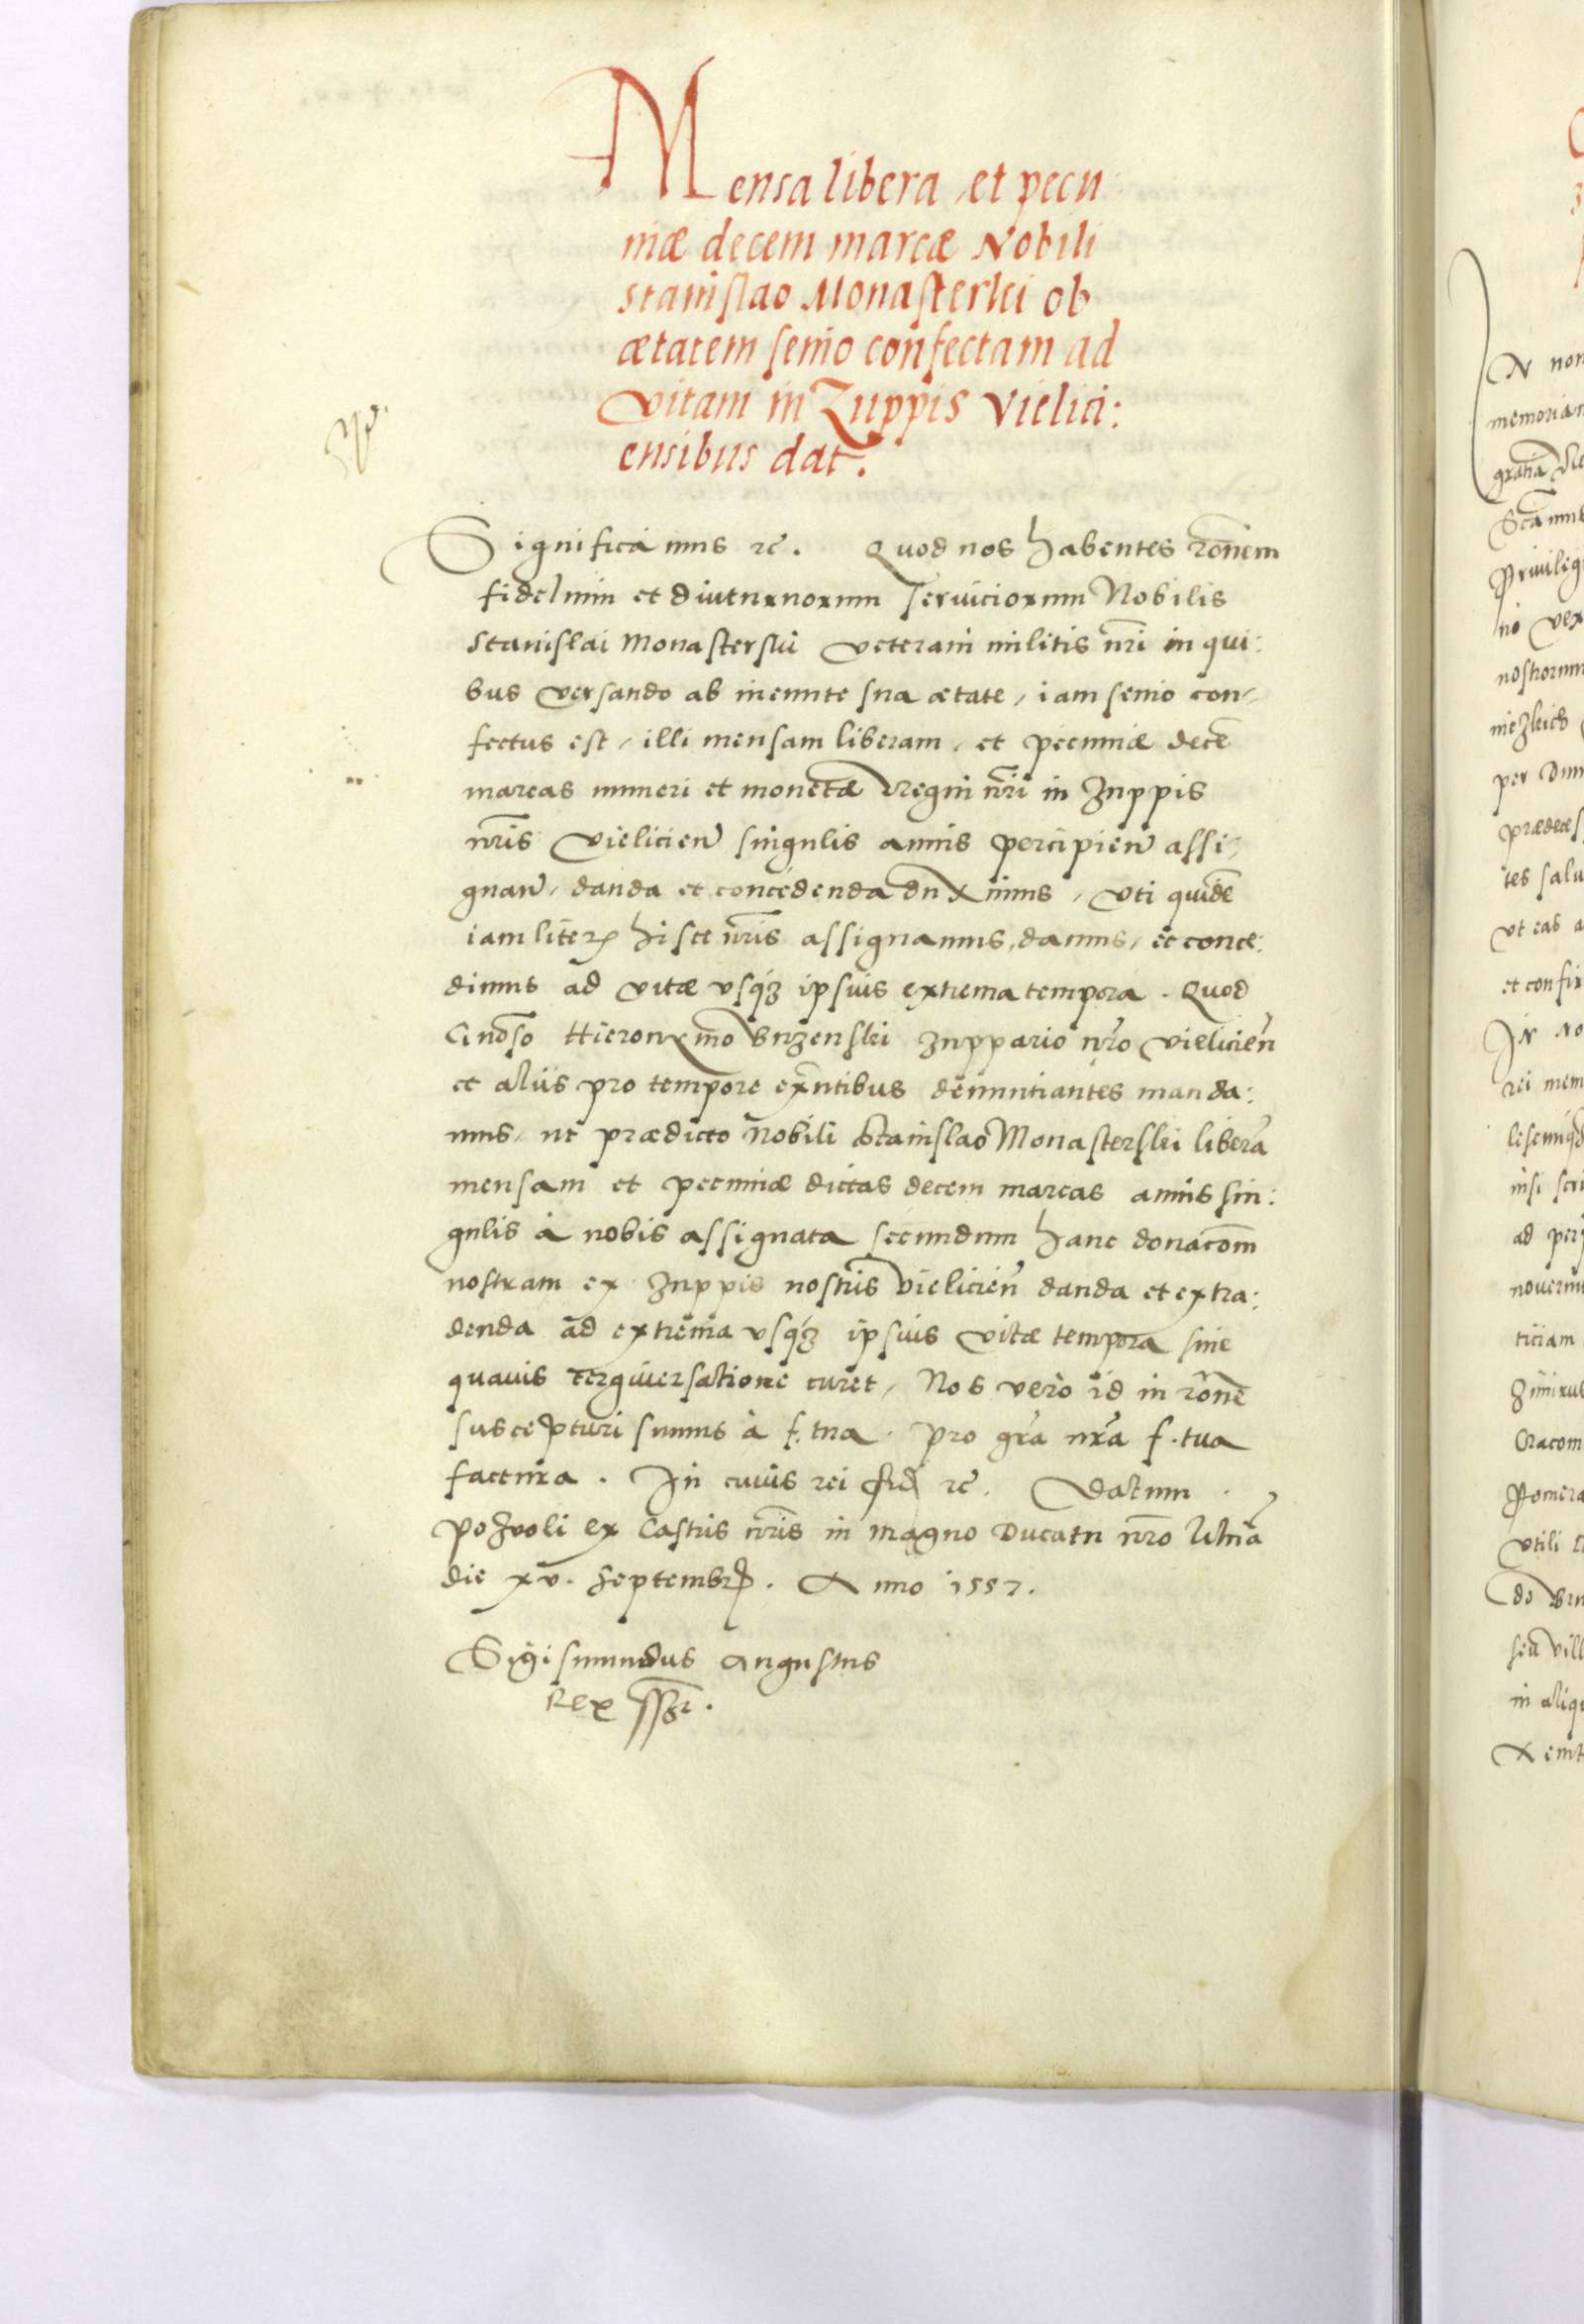 Mensa libera, et pecu
niæ decem marcæ Nobili
Stanislao Monasterski ob
ætatem senio confectam ad
vitam in Zuppis Vielici:
ensibus dat.
Significamus rc. Quod nos habentes rõnem
fidelium et diuturnorum seruiciorum Nobilis
Stanislai Monasterskii veterani militis nři in qui:
bus versando ab ineunte sua ætate, iam senio con-
fectus est, illi mensam liberam, et pecuniæ decẽ
marcas numeri et monetæ Regni nři in Zuppis
nřis Vielicien̄ singulis annis percipien̄ assi-
gnan̄, danda et concedenda dũximus, vti quidẽ
iam literis hisce nřis assignamus, damus, et conce:
dimus ad vitæ vsq3 ipsius extrema tempora. Quod
Gnõso Hieronymo Buzenski Zuppario nřo Vielicien̄
et aliis pro tempore exñtibus denuntiantes manda:
mus, ut prædicto Nobili Stanislao Monasterski liberã
mensam et pecuniæ dictas decem marcas annis sin:
gulis à nobis assignata secundum hanc donacõm
nostram ex Zuppis nostris Vielicien̄ danda et extra:
denda ad extrema vsq3 ipsius vitæ tempora sine
quauis tergiuersatione curet, Nos verò id in rõnẽ
suscepturi sumus à f. tua. pro gřa nřa f. tua
factura. In cuius rei fid rc. Datum
Pozvoli ex Castris nřis in magno Ducatu nřo Lithuã
die xv. Septembr. Anno 1557.
Sigismundus Augustus
Rex ssr.